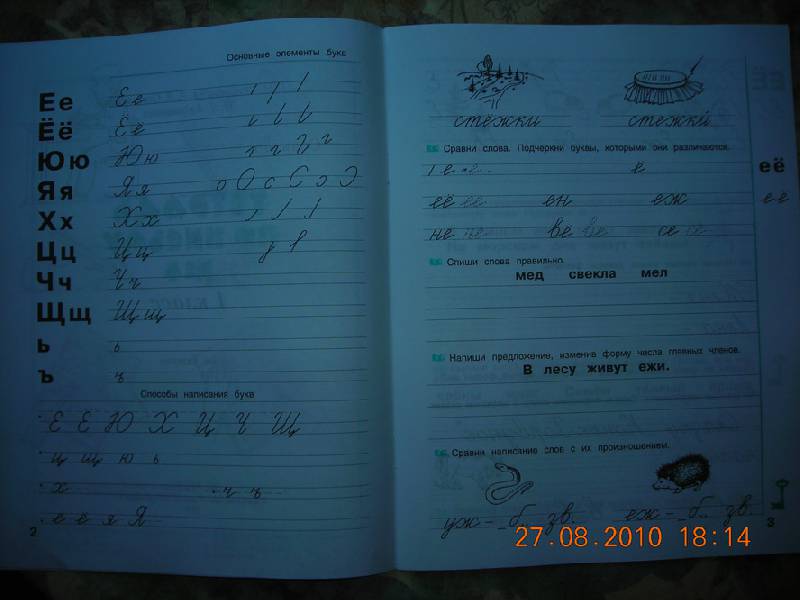 Основные элементы букв
Ее Ее
Ёё Ёё
Юю Юю
Яя Яя о О с С э Э
Хх Хх
Цц Цц
Чч Чч
Щщ Щщ
ь ь
ъ ъ
Способы написания букв
Е Ё Ю Х Ц Ч Щ
ц щ ю ь
х ч ъ
е ё я Я
2
стёжки стежки
Сравни слова. Подчеркни буквы, которыми они различаются.
е ё
её её ен еж
не не ве ве се се
Спиши слова правильно.
мед свекла мел
Напиши предложение, изменив форму числа главных членов.
В лесу живут ежи.
Сравни написание слов с их произношением.
уж - _б.. _зв. еж - _б.. _зв.
3
её
её
27.08.2010 18:14